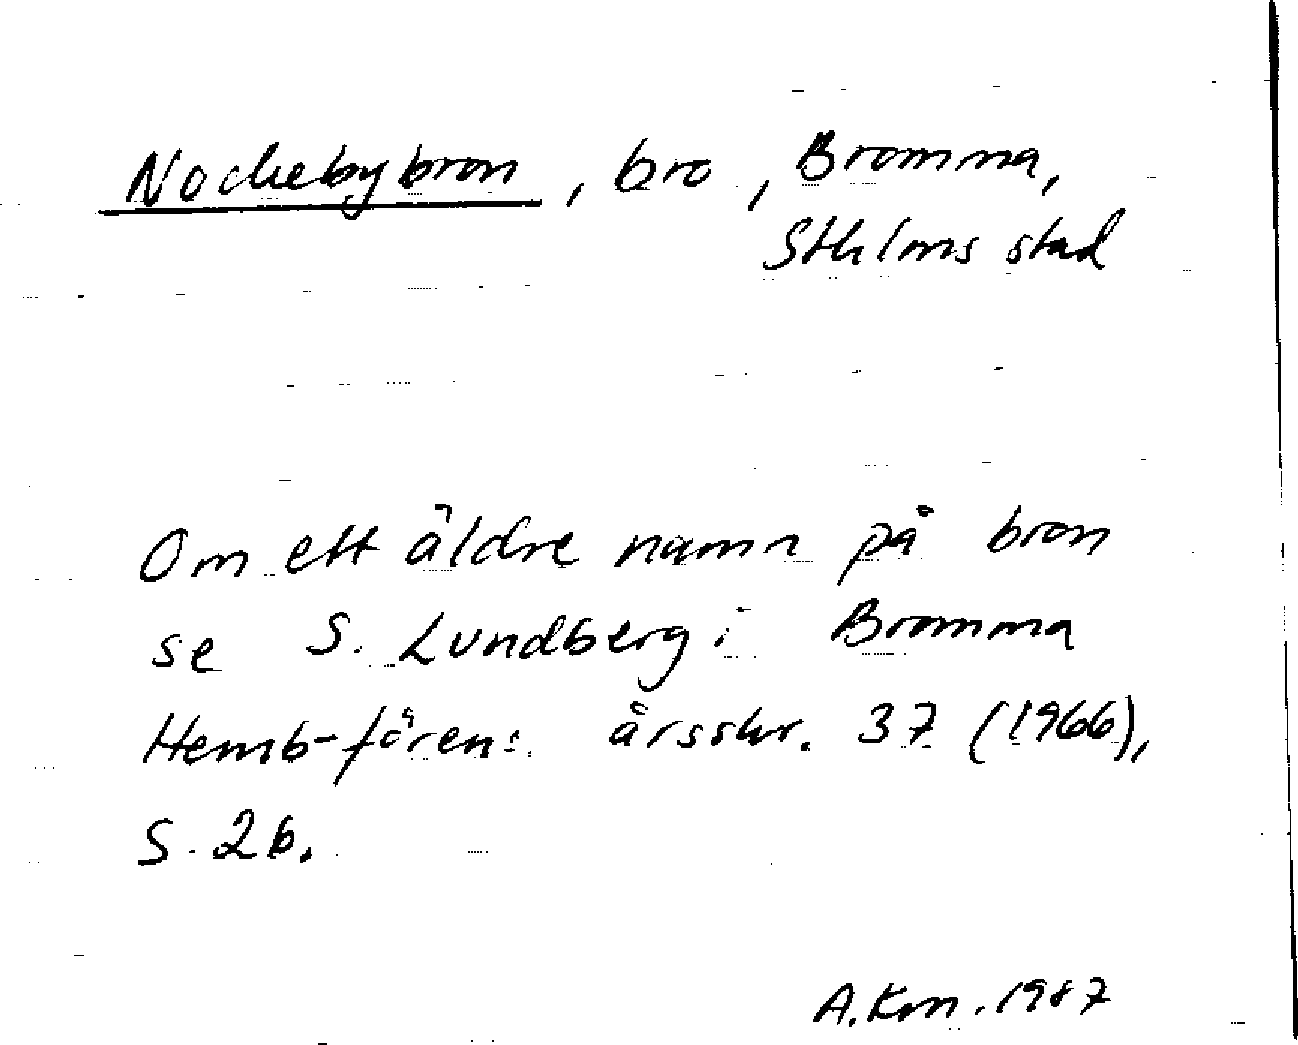 Nockebybron, bro, Bromma,
Sthlms stad
Om ett äldre namn på bron
se S. Lundberg i Bromma
Hemb-fören:s årsskr. 37 (1966),
S. 26.
A. Km. 1987